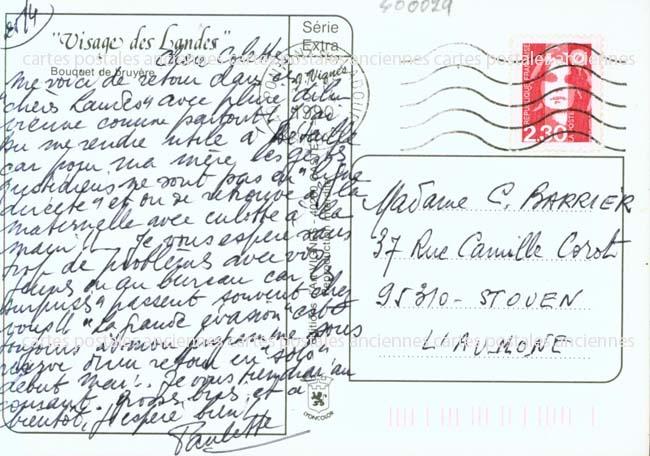 400029
"Visage des Landes"
Série
Extra
Bouquet de bruyère
Chère Colette
me voici de retour dans ces
"chères Landes" avec pluie
vienne comme partout J'ai
pu me rendre utile à
car pour ma mère les gestes
quotidiens ne sont pas en "ligne
directe" et on se retrouve à la
maternelle avec culotte à la
main!! Je vous espère sans
trop de problèmes avec vos
au bureau car les
surprises passent souvent chez
vous!! "la grande évasion" est
toujours à mon
réserve d'un retour en "solo"
début mai!. Je vous tiendrai au
courant, grosses bises et à
bientôt, j'espère bien!
Paulette
RÉPUBLIQUE FRANÇAISE
2,30
LA POSTE
Madame C. BARRIER
37 Rue Camille Corot
95310 - ST OUEN
L'AUMONE
LYONCOLOR
cartes postales anciennes cartes postales anciennes cartes postales anciennes
cartes postales anciennes cartes postales anciennes cartes postales anciennes